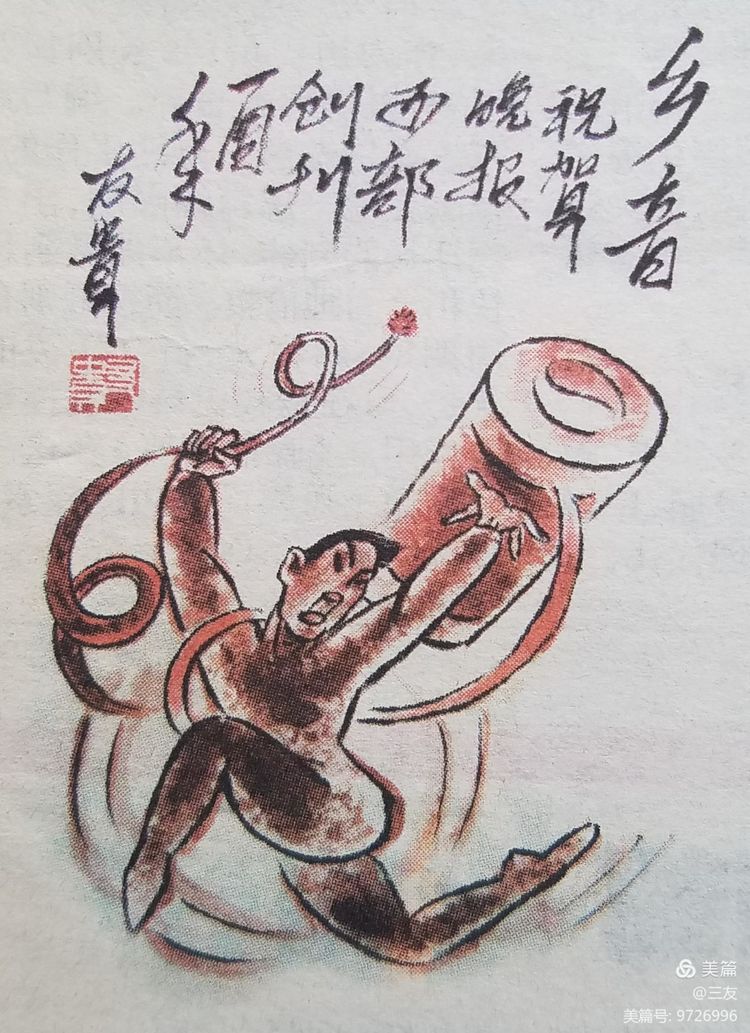 乡音
祝贺
晚报
西部
创刊
友
美篇
@三友
美篇号: 9726996